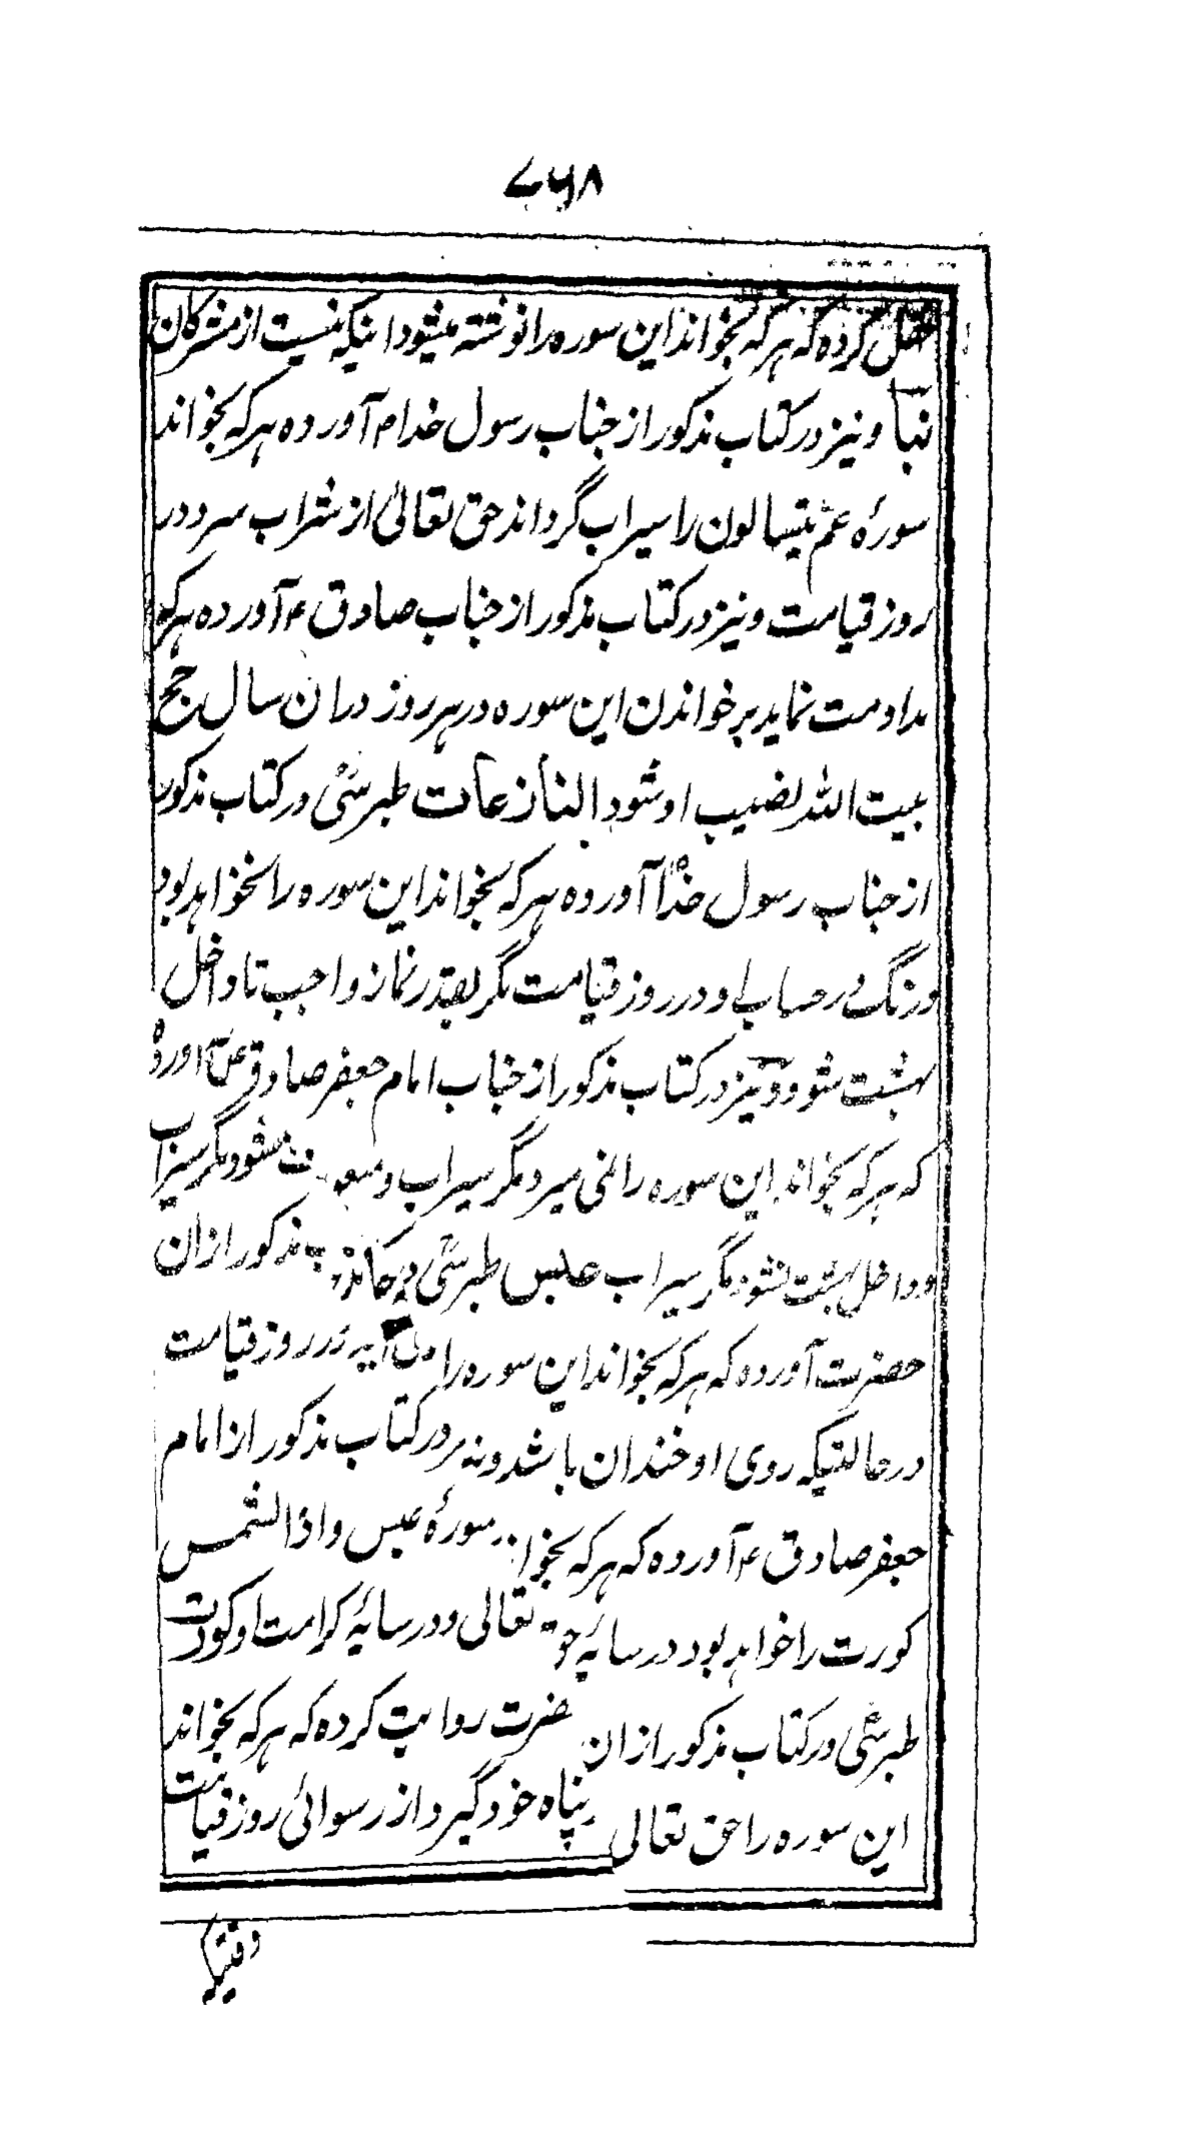 ۷۶۸
نقل کرده که هر که بخواند این سوره را نوشته میشود اینکه نیست از مشرکان
نبأ و نیز در کتاب مذکور از جناب رسول خدا م آورده هر که بخواند
سورهٔ عم یتسالون را سیراب گرداند حق تعالیٰ از شراب سرد در
روز قیامت و نیز در کتاب مذکور از جناب صادق ع آورده هر که
مداومت نماید بر خواندن این سوره در هر روز در ان سال حج
بیت الله نصیب او شود النازعات طبرسی در کتاب مذکور
از جناب رسول خدا آورده هر که بخواند این سوره را نخواهد بود
درنگ در حساب او در روز قیامت مگر بقدر نماز واجب تا داخل
بهشت شود و نیز در کتاب مذکور از جناب امام جعفر صادق ع آورده
که هر که بخواند این سوره را نمی میرد مگر سیراب و نمیشود مگر سیراب
و داخل بهشت نشود مگر سیراب عبس طبرسی در مذکور از ان
حضرت آورده که هر که بخواند این سوره را می آید در روز قیامت
در حالتیکه روی او خندان باشد و نیز در کتاب مذکور از امام
جعفر صادق ع آورده که هر که بخواند سورهٔ عبس و اذا الشمس
کورت را خواهد بود در سایهٔ حق تعالی و در سایهٔ کرامت او کورت
طبرسی در کتاب مذکور از ان حضرت روایت کرده که هر که بخواند
این سوره را حق تعالی پناه خود گیرد از رسوائی روز قیامت
وقتیکه